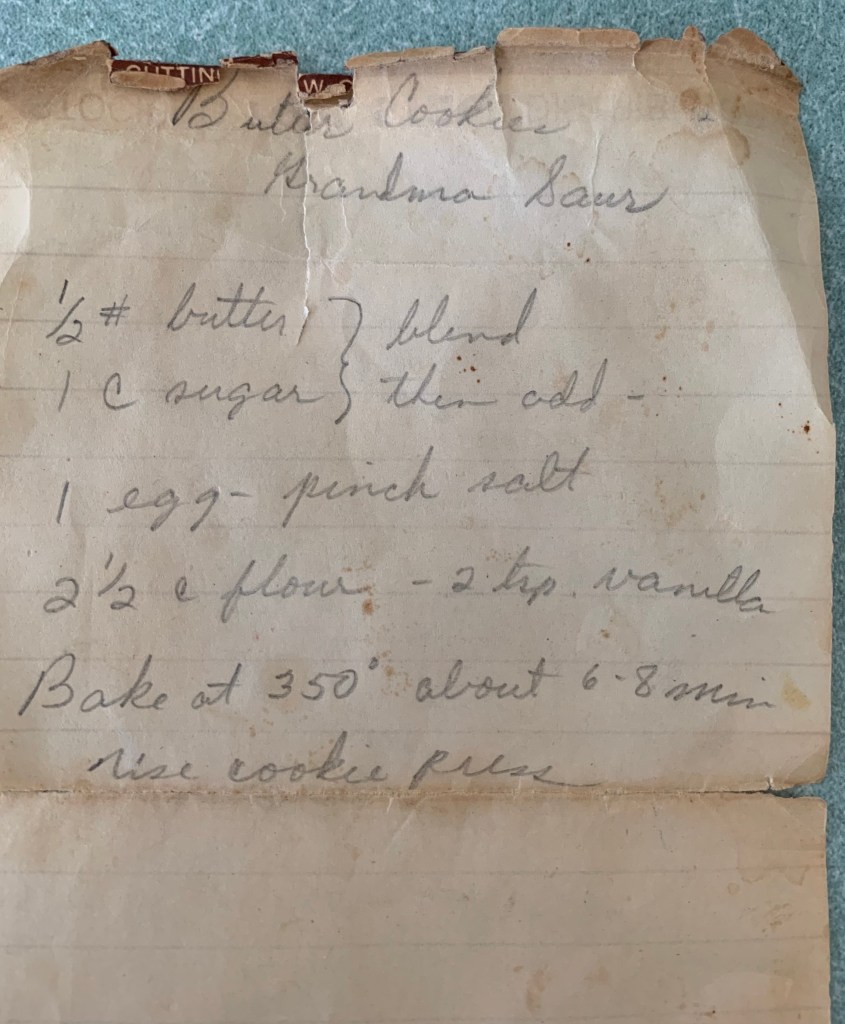 CUTTIN W
Butter Cookies
Grandma Saur
½ # butter } blend
1 c sugar } then add -
1 egg - pinch salt
2 ½ c flour - 2 tsp. vanilla
Bake at 350° about 6-8 min
use cookie press